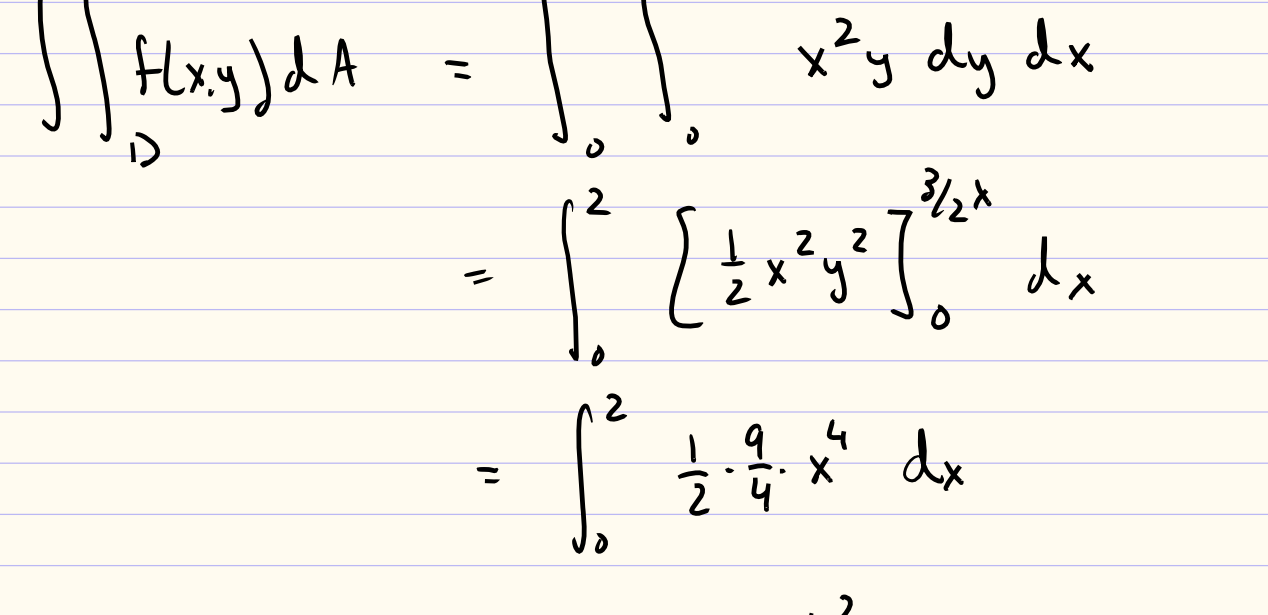 ∫∫_D f(x,y) dA = ∫_0 ∫_0 x²y dy dx
= ∫_0^2 [ 1/2 x²y² ]_0^{3/2 x} dx
= ∫_0^2 1/2 · 9/4 · x⁴ dx
2